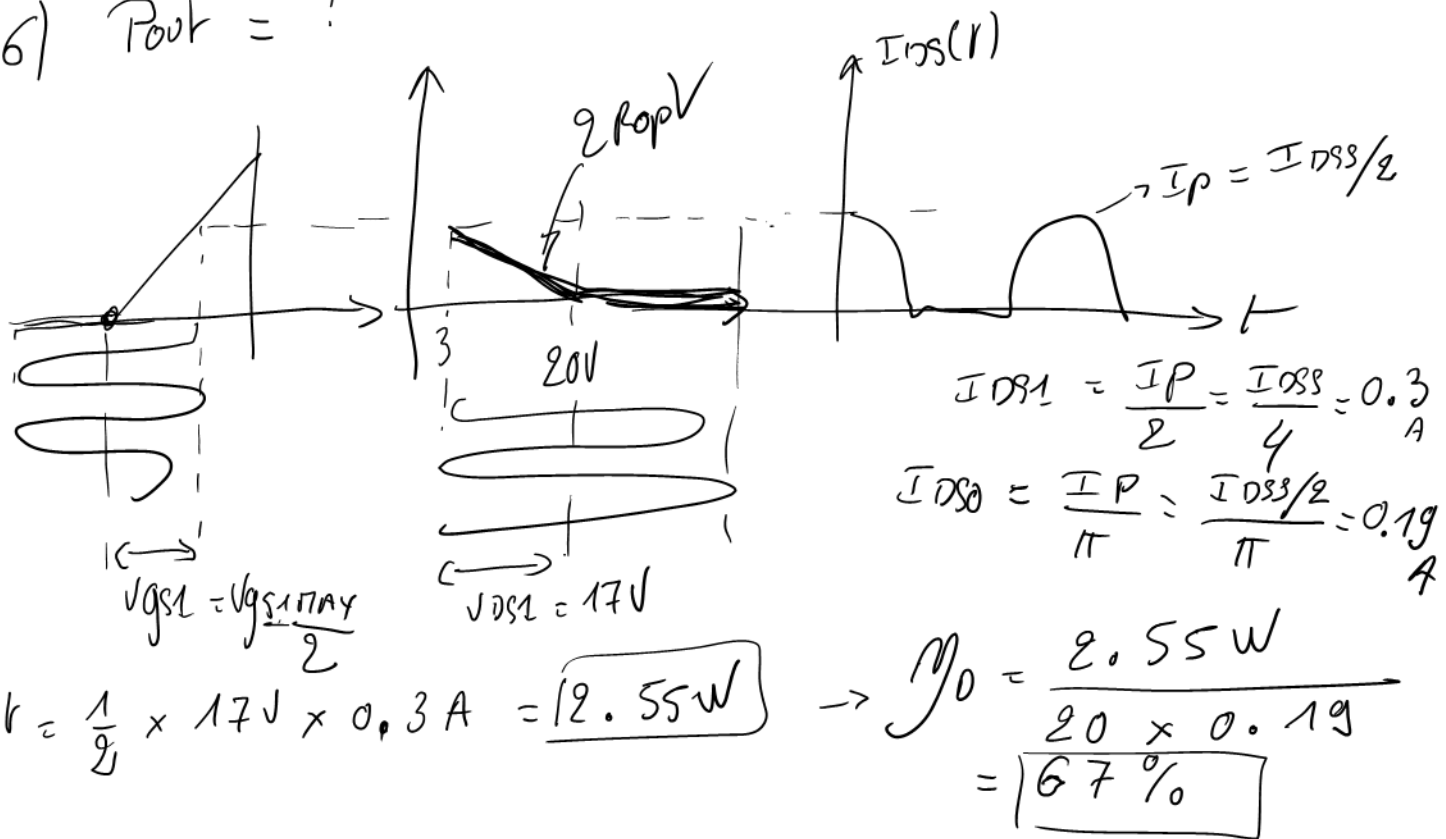 6) Pout = ?
IDS(t)
2 RoptV
Ip = IDSS/2
t
3
20V
IDS1 = IP/2 = IDSS/4 = 0.3 A
IDS0 = IP/π = IDSS/2/π = 0.19 A
VgS1 = VgS1MAX/2
VDS1 = 17V
= 1/2 × 17V × 0.3 A = 2.55W → ηD = 2.55W / 20 × 0.19
= 67%